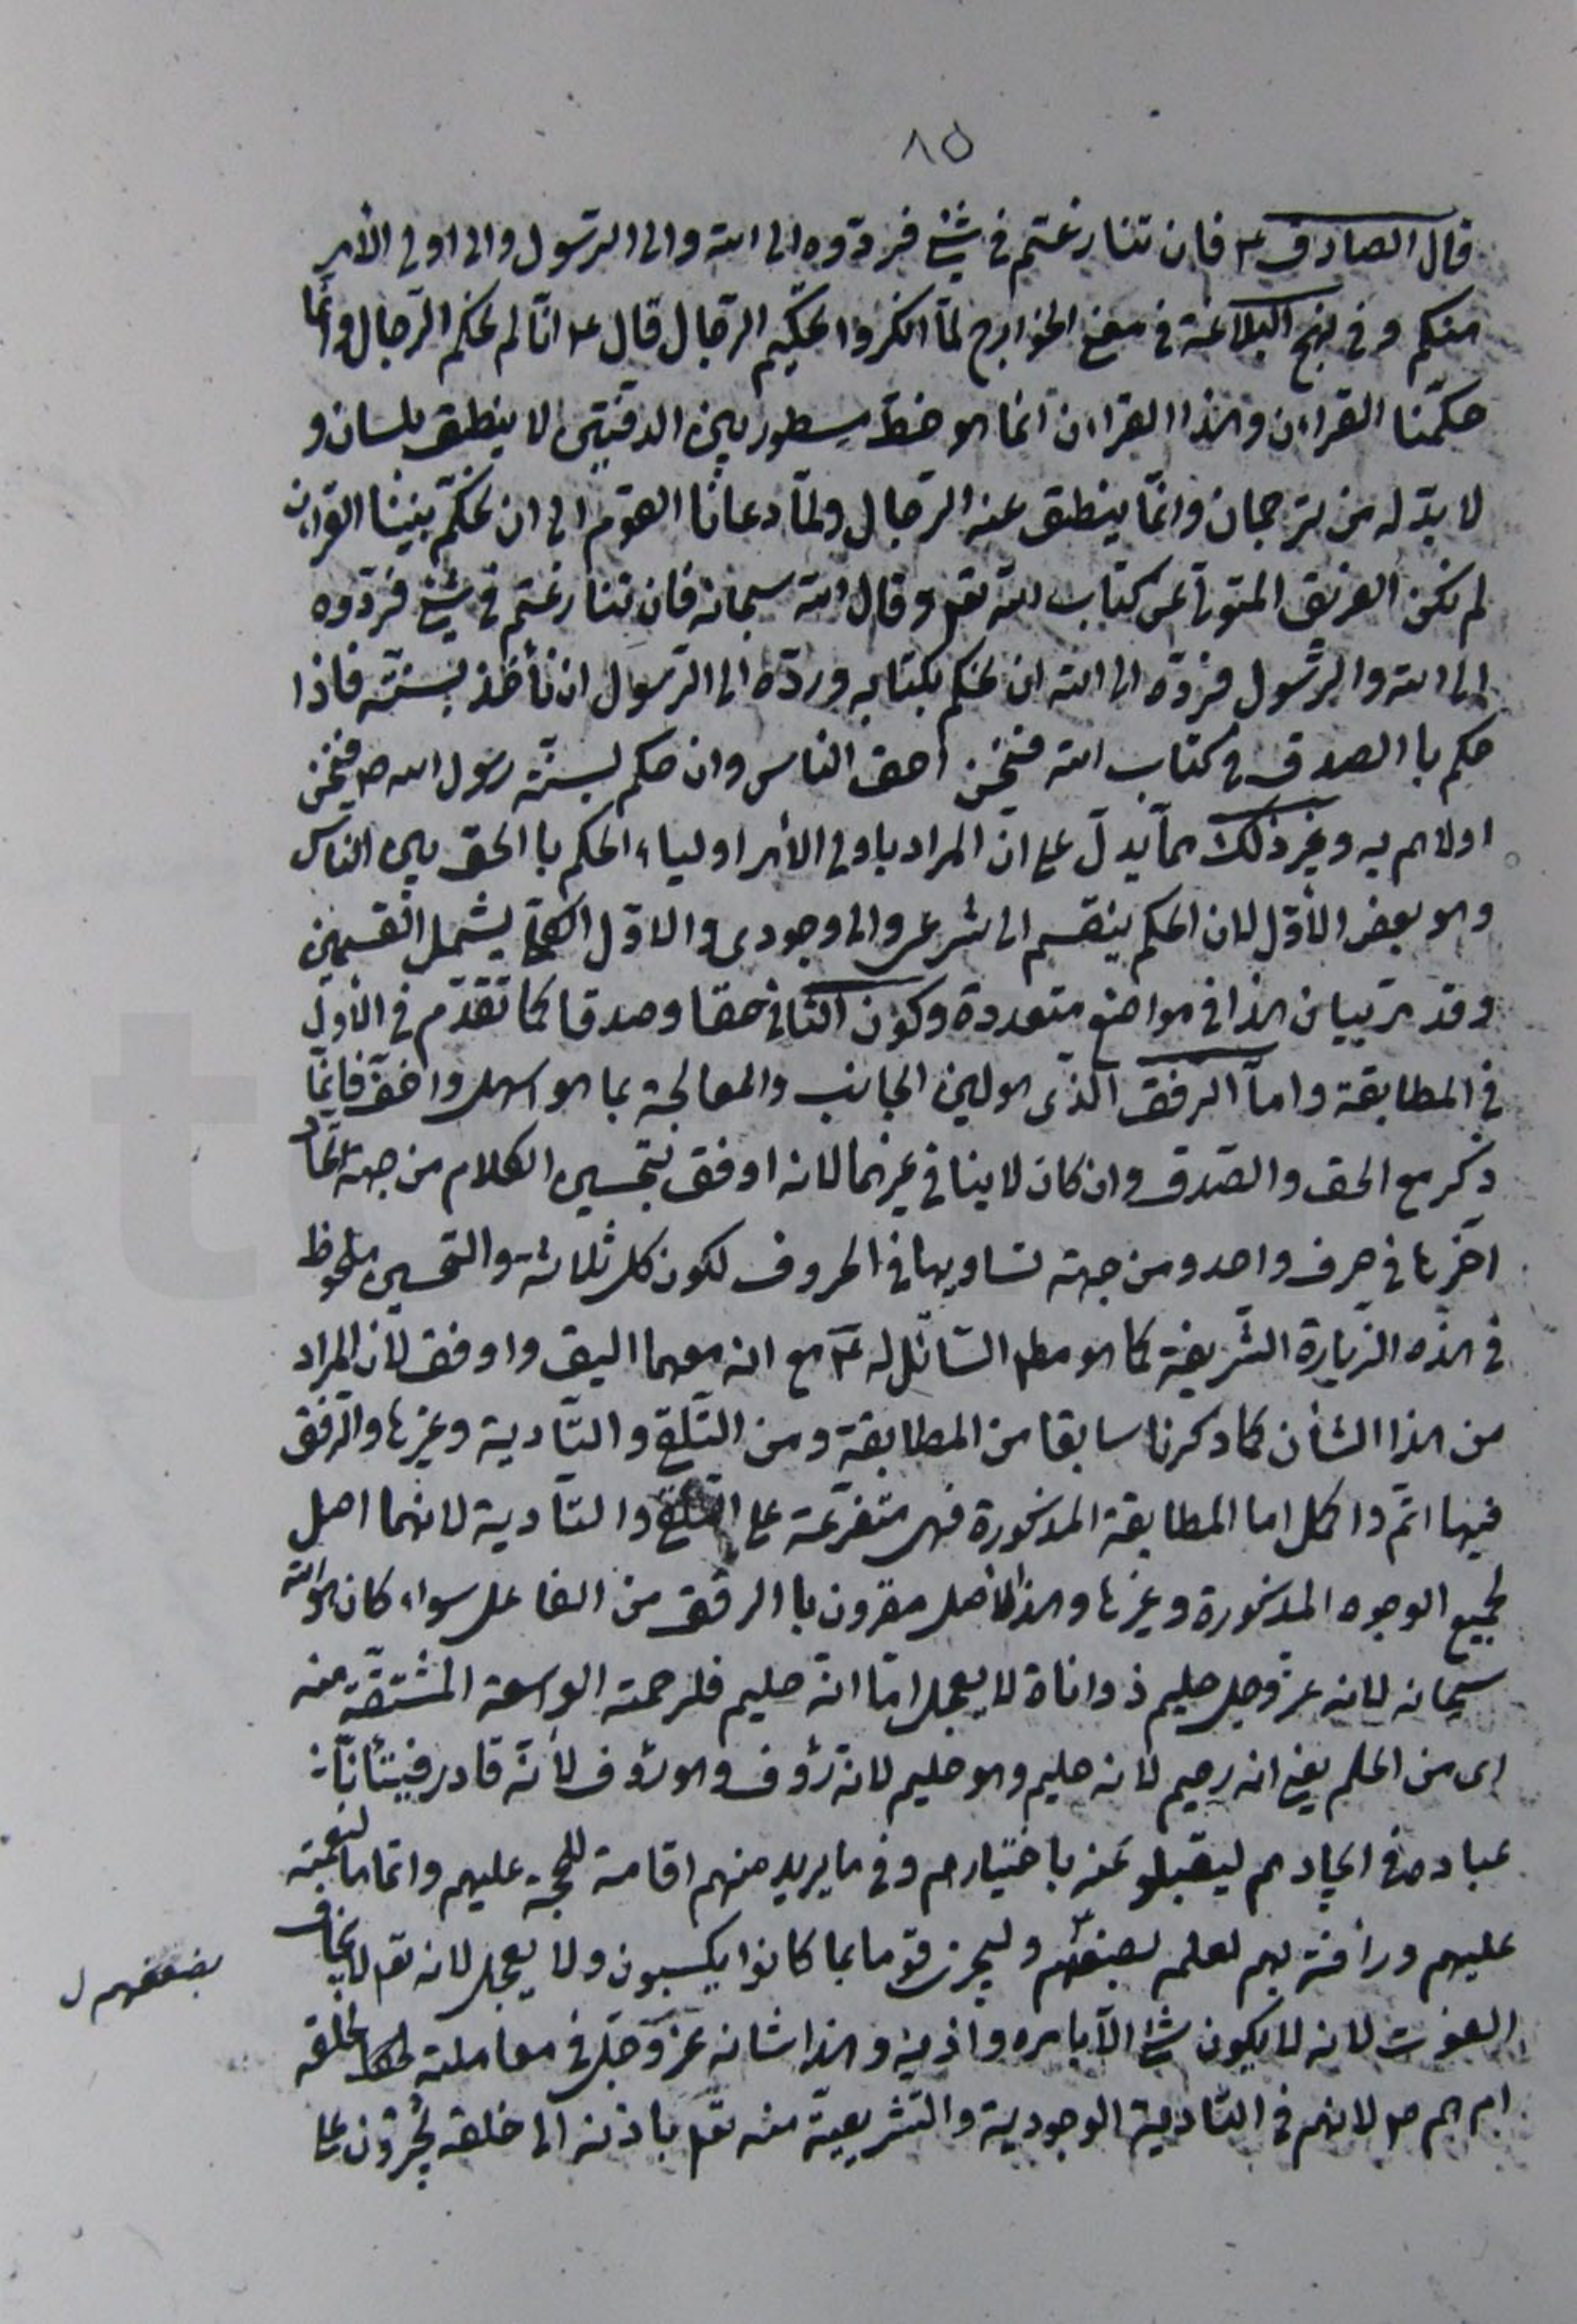 ٨٥
قال الصادق ع فان تنازعتم فى شئ فردّوه الى الله والى الرّسول والى اولى الأمر
منكم وفى نهج البلاغة فى معنى الخوارج لمّا انكروا تحكيم الرّجال قال ع انّا لم نحكم الرّجال وانّما
حكّمنا القرءان وهذا القرءان انما هو خطّ مسطور بين الدفتين لا ينطق بلسان و
لا بدّ له من ترجمان وانّما ينطق عنه الرّجال ولمّا دعانا القوم الى ان نحكّم بيننا القرءان
لم نكن الفريق المتولّى عن كتاب الله تعم وقال الله سبحانه فان تنازعتم فى شئ فردّوه
الى الله والرّسول فردّه الى الله ان نحكم بكتابه وردّه الى الرّسول ان نأخذ بسنّته فاذا
حكم باالصدق فى كتاب الله فنحن احق الناس وان حكم بسنّة رسول الله ص فنحن
اولاهم به وغير ذلك ممّا يدلّ على انّ المراد باولى الأمر اولياء الحكم باالحق بين الناس
وهو بعض الأوّل لان الحكم ينقسم الى شرعى والى وجودى والاوّل يشمل القسمين
وقد مرّ بيان هذا فى مواضع متعددة وكون الثانى حقا وصدقا كما تقدّم فى الأوّل
فى المطابقة وامّا الرفق الّذى هو لين الجانب والمعالجة بما هو اسهل واخفّ فانّما
ذكر مع الحق والصّدق وان كان لا ينافى غيرهما لانه اوفق بتحسين الكلام من جهة اتّحاد
آخرها فى حرف واحد ومن جهة تساويها فى الحروف لكون كل ثلاثة والتحسين ملحوظ
فى هذه الزّيارة الشّريفة كما هو مطلب السّائل له ع مع انه معهما اليق واوفق لأن المراد
من هذا الشأن كما ذكرنا سابقا من المطابقة ومن التّلقّى والتّأدية وغيرها والرّفق
فيها اتمّ واكمل اما المطابقة المذكورة فهى متفرّعة على التّلقّى والتّأدية لانهما اصل
لجميع الوجوه المذكورة وغيرها وهذا الأصل مقرون باالرفق من الفاعل سواء كان هو الله
سبحانه لانه عزّ وجل حليم ذو اناة لا يعجل امّا انّه حليم فلرحمته الواسعة المشتقّة منه
اى من الحلم يعنى انه رحيم لانه حليم وهو حليم لانه رؤف وهو رؤف لأنّه قادر فيتأنّا بـ
عباده فى ايجادهم ليقبلو عنه باختيارهم وفى ما يريد منهم اقامة للحجة عليهم واتماما لنعمته
عليهم ورأفة بهم لعلمه بضعفهم وليجزى قوما بما كانوا يكسبون ولا يعجل لانه تعم لا يخاف
بضعفهم ل
الفوت لانه لا يكون شئ الّا بامره واذنه وهذا شانه عزّ وجل فى معاملته لخلقه
ام هم ص لانهم فى التّأدية الوجودية والتشريعيّة منه تعم باذنه الى خلقه يجرون على